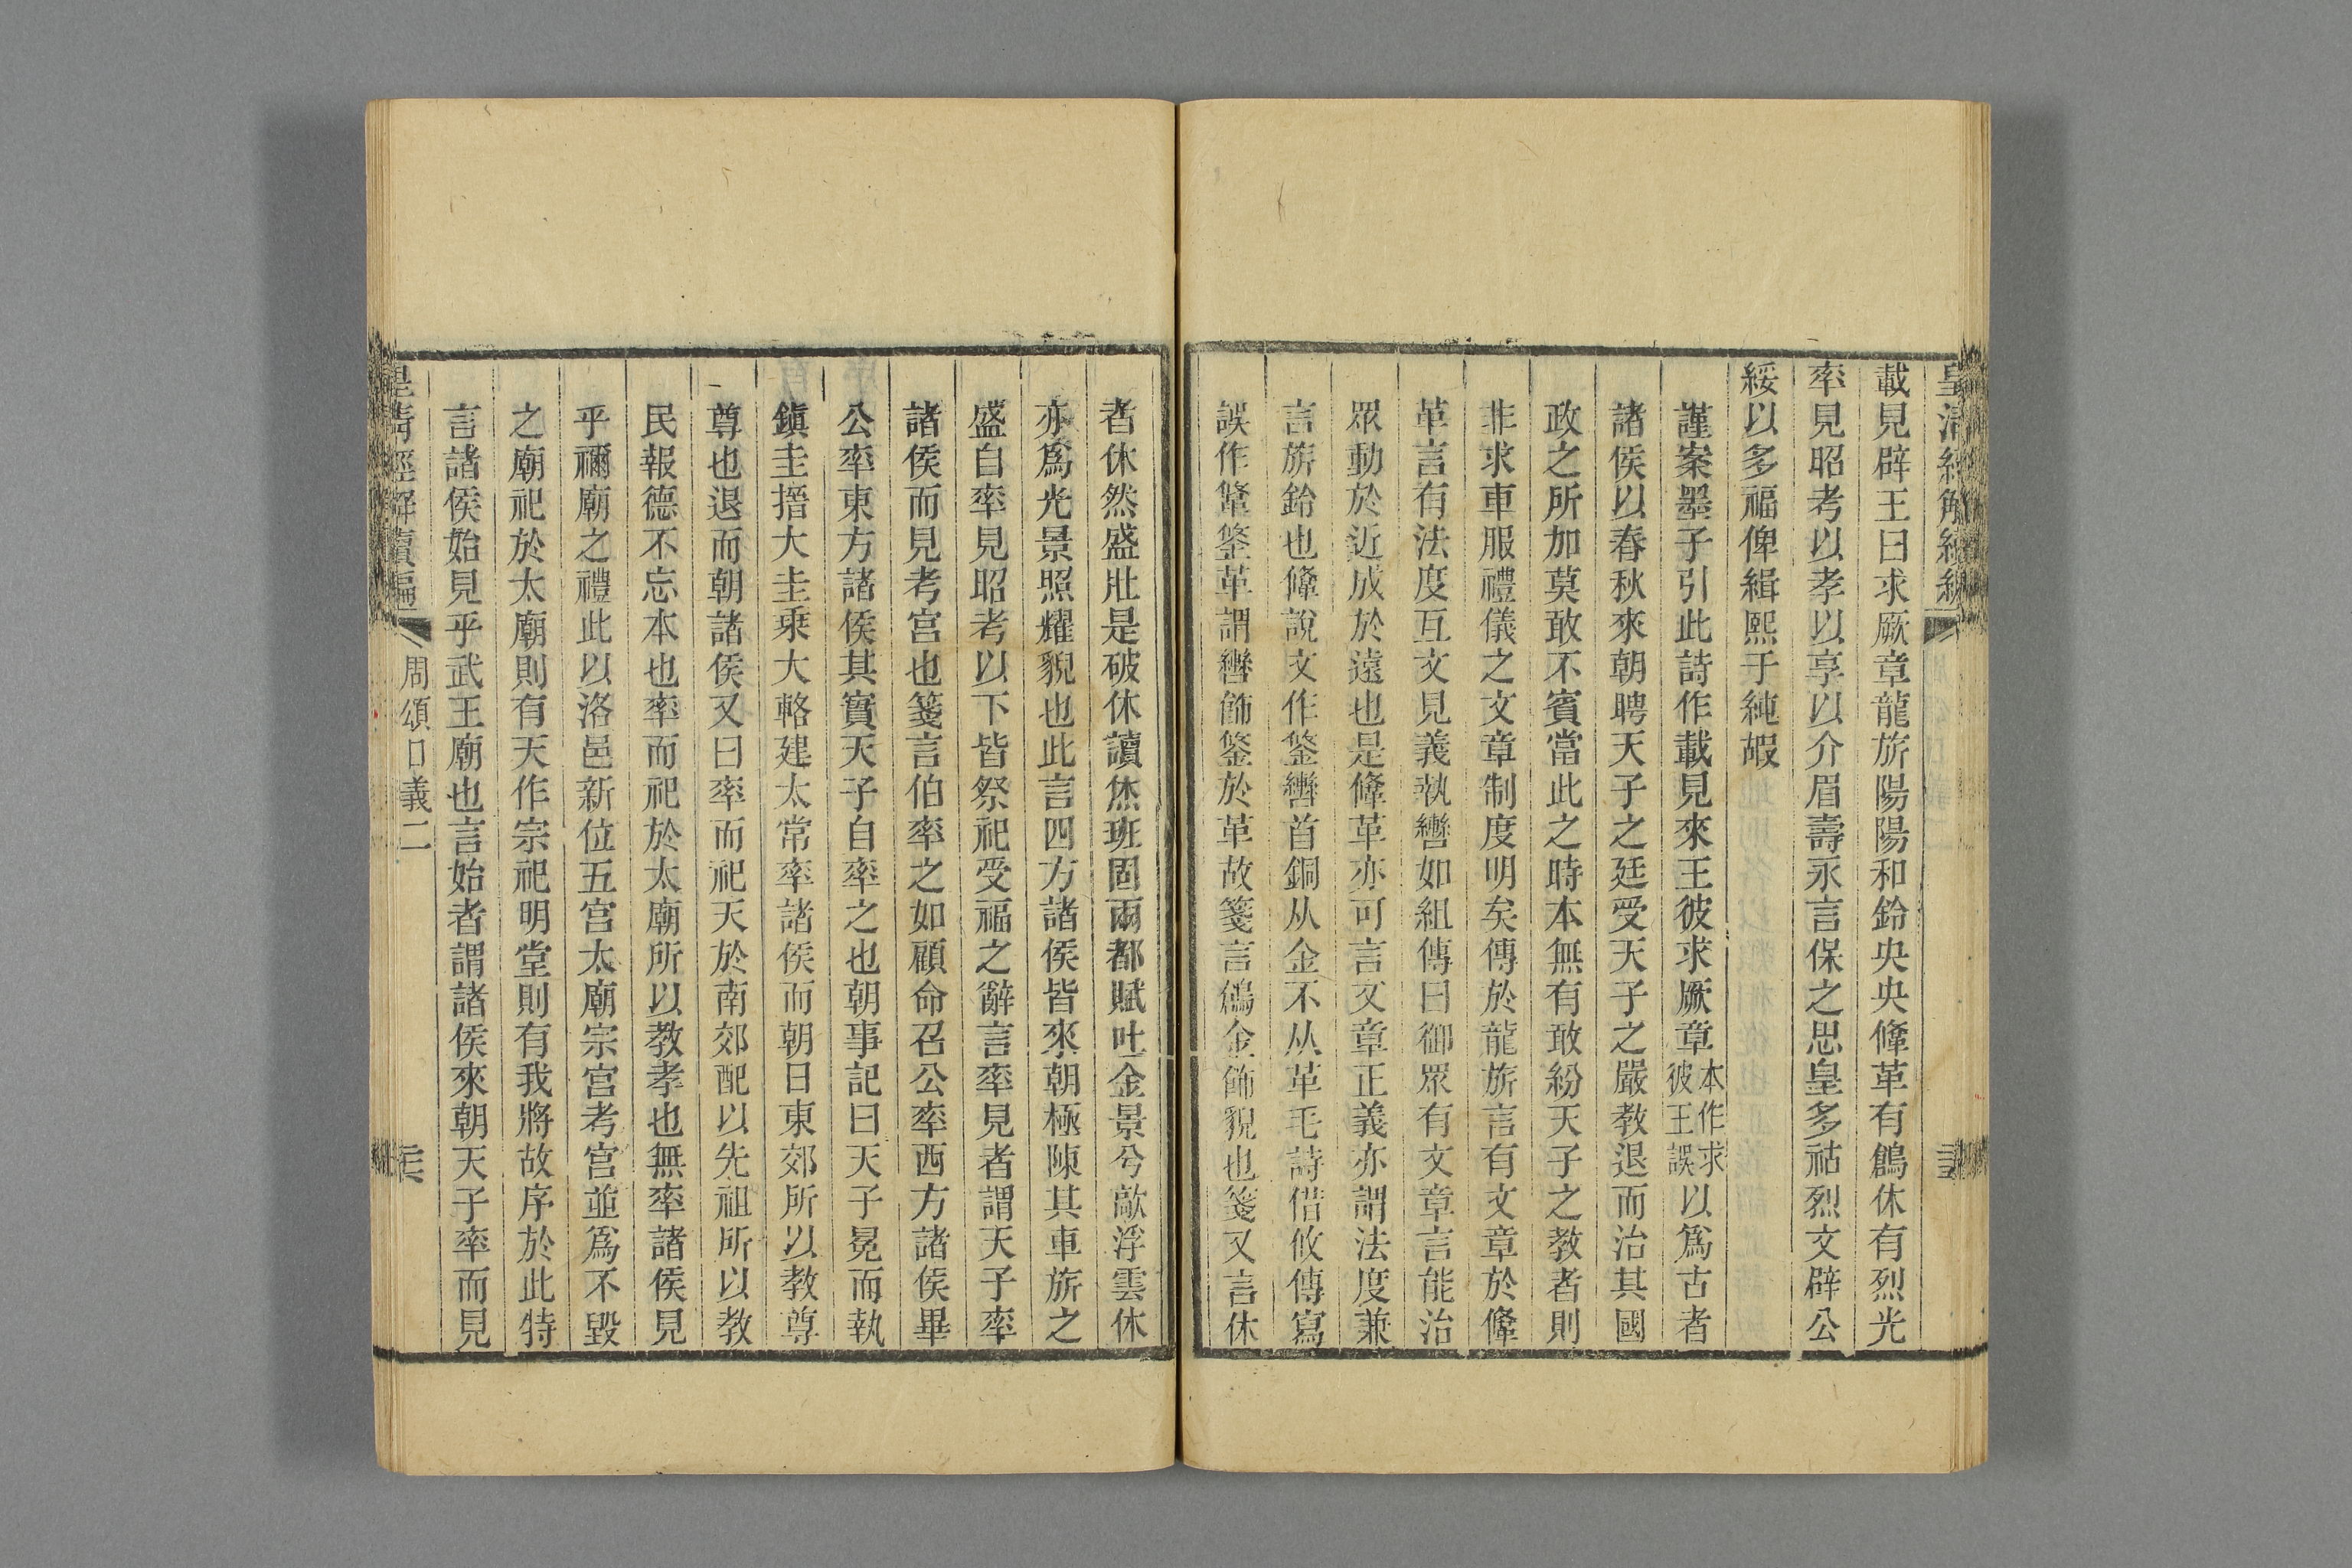 載見辟王曰求厥章龍旂陽陽和鈴央央鞗革有鶬休有烈光
率見昭考以孝以享以介眉壽永言保之思皇多祜烈文辟公
綏以多福俾緝熙于純嘏
謹案墨子引此詩作載見來王彼求厥章本作求彼王誤以爲古者
諸侯以春秋來朝聘天子之廷受天子之嚴教退而治其國
政之所加莫敢不賓當此之時本無有敢紛天子之教者則
非求車服禮儀之文章制度明矣傳於龍旂言有文章於鞗
革言有法度互文見義執轡如組傳曰御眾有文章言能治
眾動於近成於遠也是鞗革亦可言文章正義亦謂法度兼
言旂鈴也鞗說文作鋚轡首銅从金不从革毛詩借攸傳寫
誤作鞗鋚革謂轡飾鋚於革故箋言鶬金飾貌也箋又言休
者休然盛壯是破休讀烋班固兩都賦吐金景兮歊浮雲休
亦爲光景照耀貌也此言四方諸侯皆來朝極陳其車旂之
盛自率見昭考以下皆祭祀受福之辭言率見者謂天子率
諸侯而見考宫也箋言伯率之如顧命召公率西方諸侯畢
公率東方諸侯其實天子自率之也朝事記曰天子冕而執
鎮圭搢大圭乘大輅建太常率諸侯而朝日東郊所以教尊
尊也退而朝諸侯又曰率而祀天於南郊配以先祖所以教
民報德不忘本也率而祀於太廟所以教孝也無率諸侯見
乎禰廟之禮此以洛邑新位五宫太廟宗宫考宫並爲不毀
之廟祀於太廟則有天作宗祀明堂則有我將故序於此特
言諸侯始見乎武王廟也言始者謂諸侯來朝天子率而見
皇清經解續編 周頌口義二